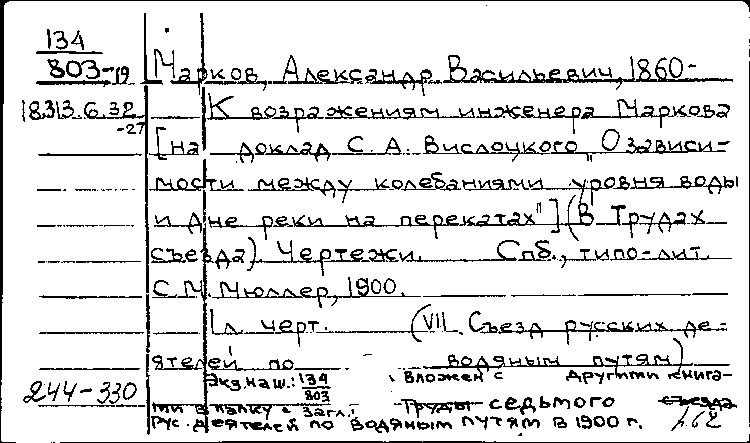 134
803-19 Марков, Александр Васильевич, 1860-
18313.6.32 К возражениям инженера Маркова
-27 [на доклад С. А. Вислоцкого „О зависи-
мости между колебаниями уровня воды
и дне реки на перекатах"] (В Трудах
съезда). Чертежи. Спб., типо-лит.
С. М. Мюллер, 1900.
1 л черт. (VII Съезд русских де-
ятелей по водяным путям)
244-330 Экз. наш.: 134/803, вложен с другими книга-
ми в папку с загл.: Труды седьмого съезда
Рус. деятелей по водяным путям в 1900 г.